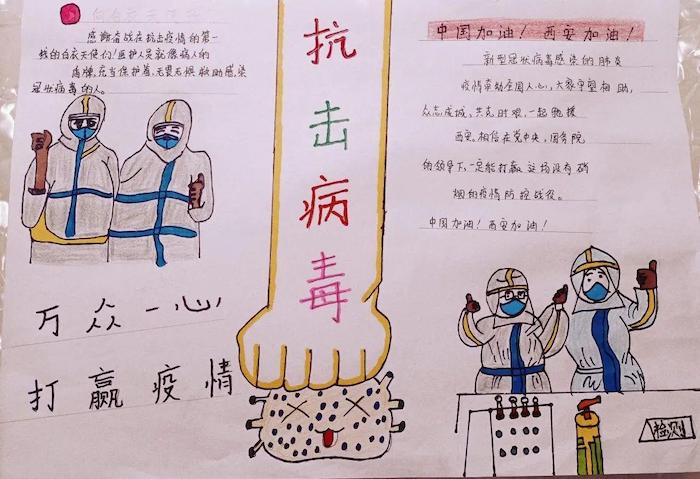 感谢奋战在抗击疫情的第一
线的白衣天使们!医护人员就像病人的
盾牌,充当保护着,无畏无惧救助感染
冠状病毒的人。
万众一心
打赢疫情
抗击病毒
中国加油! 西安加油!
新型冠状病毒感染的肺炎
疫情牵动全国人心,大家守望相助,
众志成城,共克时艰,一起驰援
西安。相信在党中央,国务院
的领导下,一定能打赢这场没有硝
烟的疫情防控战役。
中国加油! 西安加油!
检测